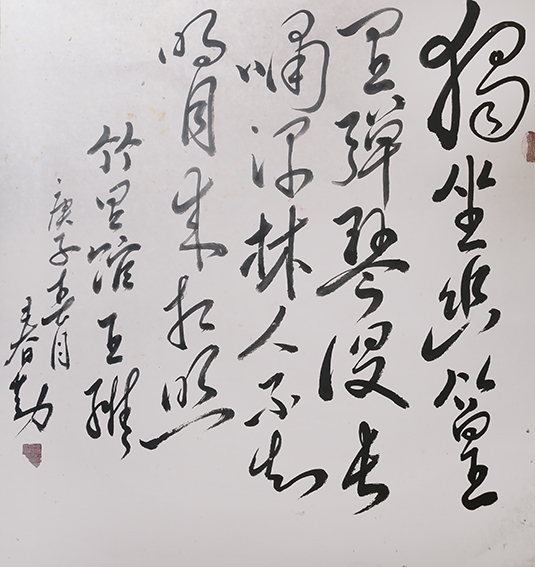 獨坐幽篁
里彈琴復長
嘯深林人不知
明月来相照
竹里館王維
庚子 月
王春